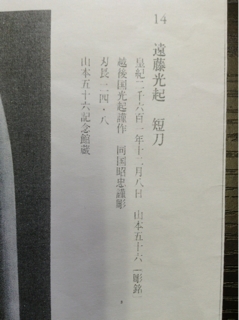 14 遠藤光起 短刀
皇紀二千六百一年十二月八日 山本五十六(彫銘)
越後国光起謹作 岡国昭忠謹彫
刃長 二四・八
山本五十六記念館蔵